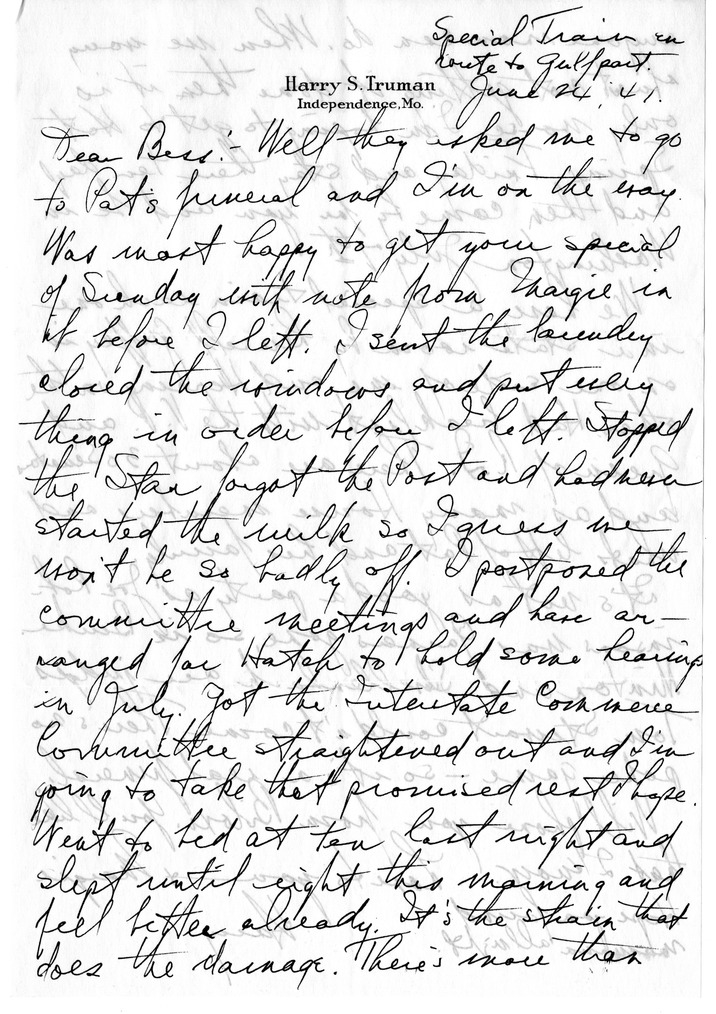 Special Train en
route to Gulfport.
June 24, '41.
Harry S. Truman
Independence, Mo.
Dear Bess:- Well they asked me to go
to Pat's funeral and I'm on the way.
Was most happy to get your special
of Sunday with note from Margie in
it before I left. I sent the laundry
closed the windows and put every
thing in order before I left. Stopped
the Star forgot the Post and had never
started the milk so I guess we
won't be so badly off. I postponed the
committee meetings and have ar-
ranged for Hatch to hold some hearings
in July. Got the Interstate Commerce
Committee straightened out and I'm
going to take that promised rest I hope.
Went to bed at ten last night and
slept until eight this morning and
feel better already. It's the strain that
does the damage. There's more than